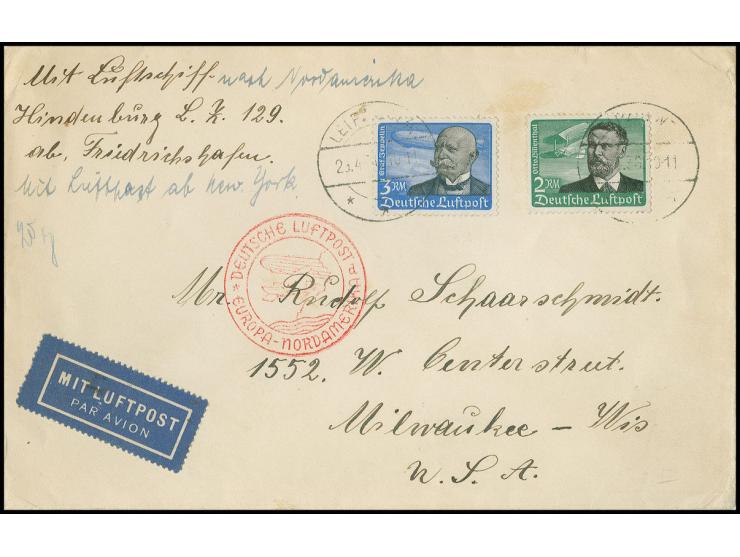 Mit Luftschiff nach Nordamerika
Hindenburg L. Z. 129.
ab, Friedrichshafen.
Mit Luftpost ab New York
20 g
Graf Zeppelin
3 RM
Deutsche Luftpost
Otto Lilienthal
2 RM
Deutsche Luftpost
DEUTSCHE LUFTPOST
EUROPA-NORDAMERIKA
Mr. Rudolf Schaarschmidt.
1552. W. Centerstreet.
Milwaukee – Wis
U. S. A.
MIT LUFTPOST
PAR AVION